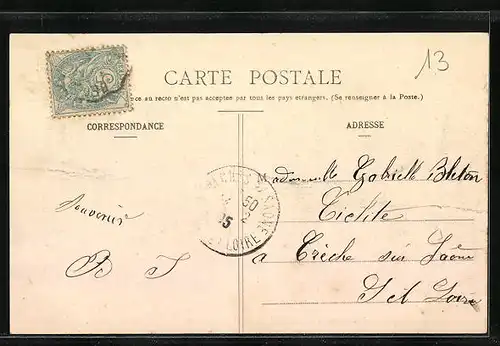 13
CARTE POSTALE
ce au recto n'est pas acceptée par tous les pays étrangers. (Se renseigner à la Poste.)
CORRESPONDANCE
ADRESSE
Mademoiselle Gabrielle
Souvenir
B J
à Crèche sur Saône
S et Loire
SAONE
50
05
LOIRE